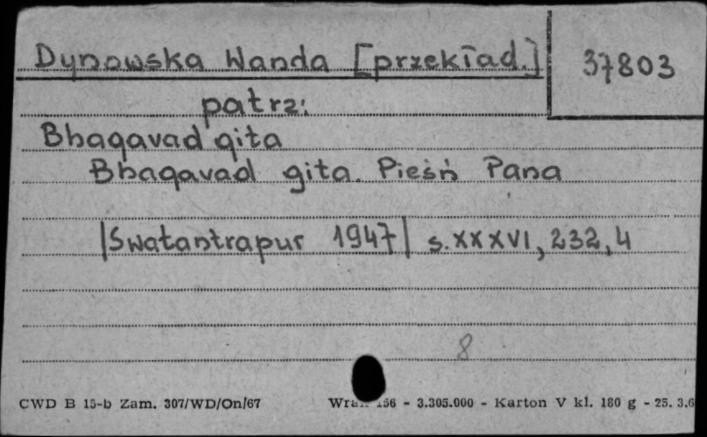 Dynowska Wanda [przekład.]
37803
patrz:
Bhagavad gita
Bhagavad gita. Pieśń Pana
|Swatantrapur 1947| s. XXXVI, 232, 4
8
CWD B 15-b Zam. 307/WD/On/67 156 - 3.305.000 - Karton V kl. 180 g - 25. 3.6